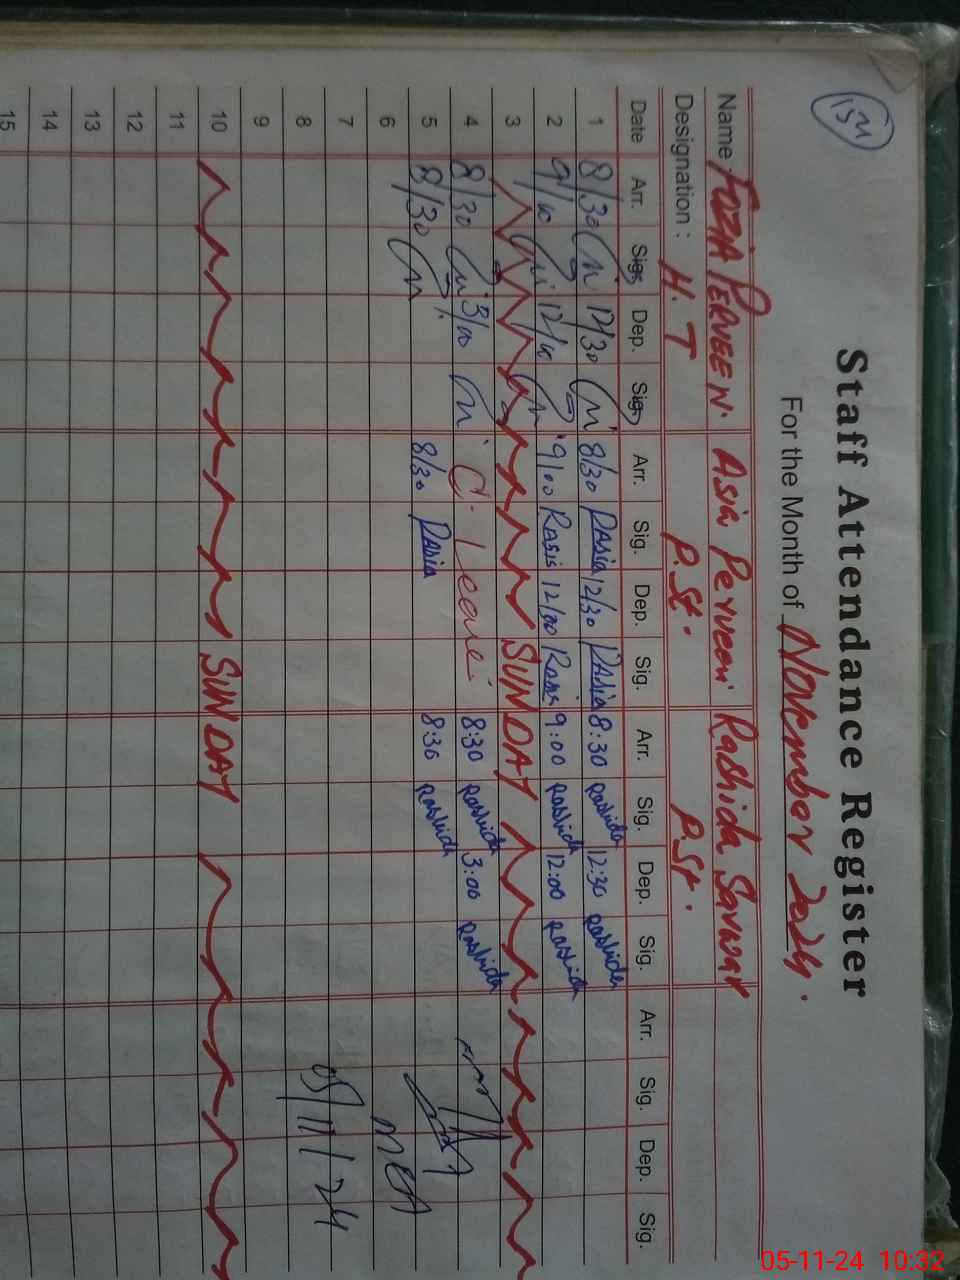 151
Staff Attendance Register
For the Month of November 2024.
Name FOZIA PERVEEN. Asia Perveen Rashida Sarwar
Designation : H.T P.St. P.St.
Date Arr. Sig. Dep. Sig. Arr. Sig. Dep. Sig. Arr. Sig. Dep. Sig. Arr. Sig. Dep. Sig.
1 8/30 12/30 8/30 12/30 8:30 Rashida 12:30 Rashida
2 9/00 12/00 9/00 12/00 9:00 Rashida 12:00 Rashida
3 SUNDAY
4 8/30 3/00 C. Leave 8:30 Rashida 3:00 Rashida
5 8/30 8/30 8:30 Rashida
6 MEA
7
8 05/11/24
9
10 SUNDAY
11
12
13
14
15
05-11-24 10:32